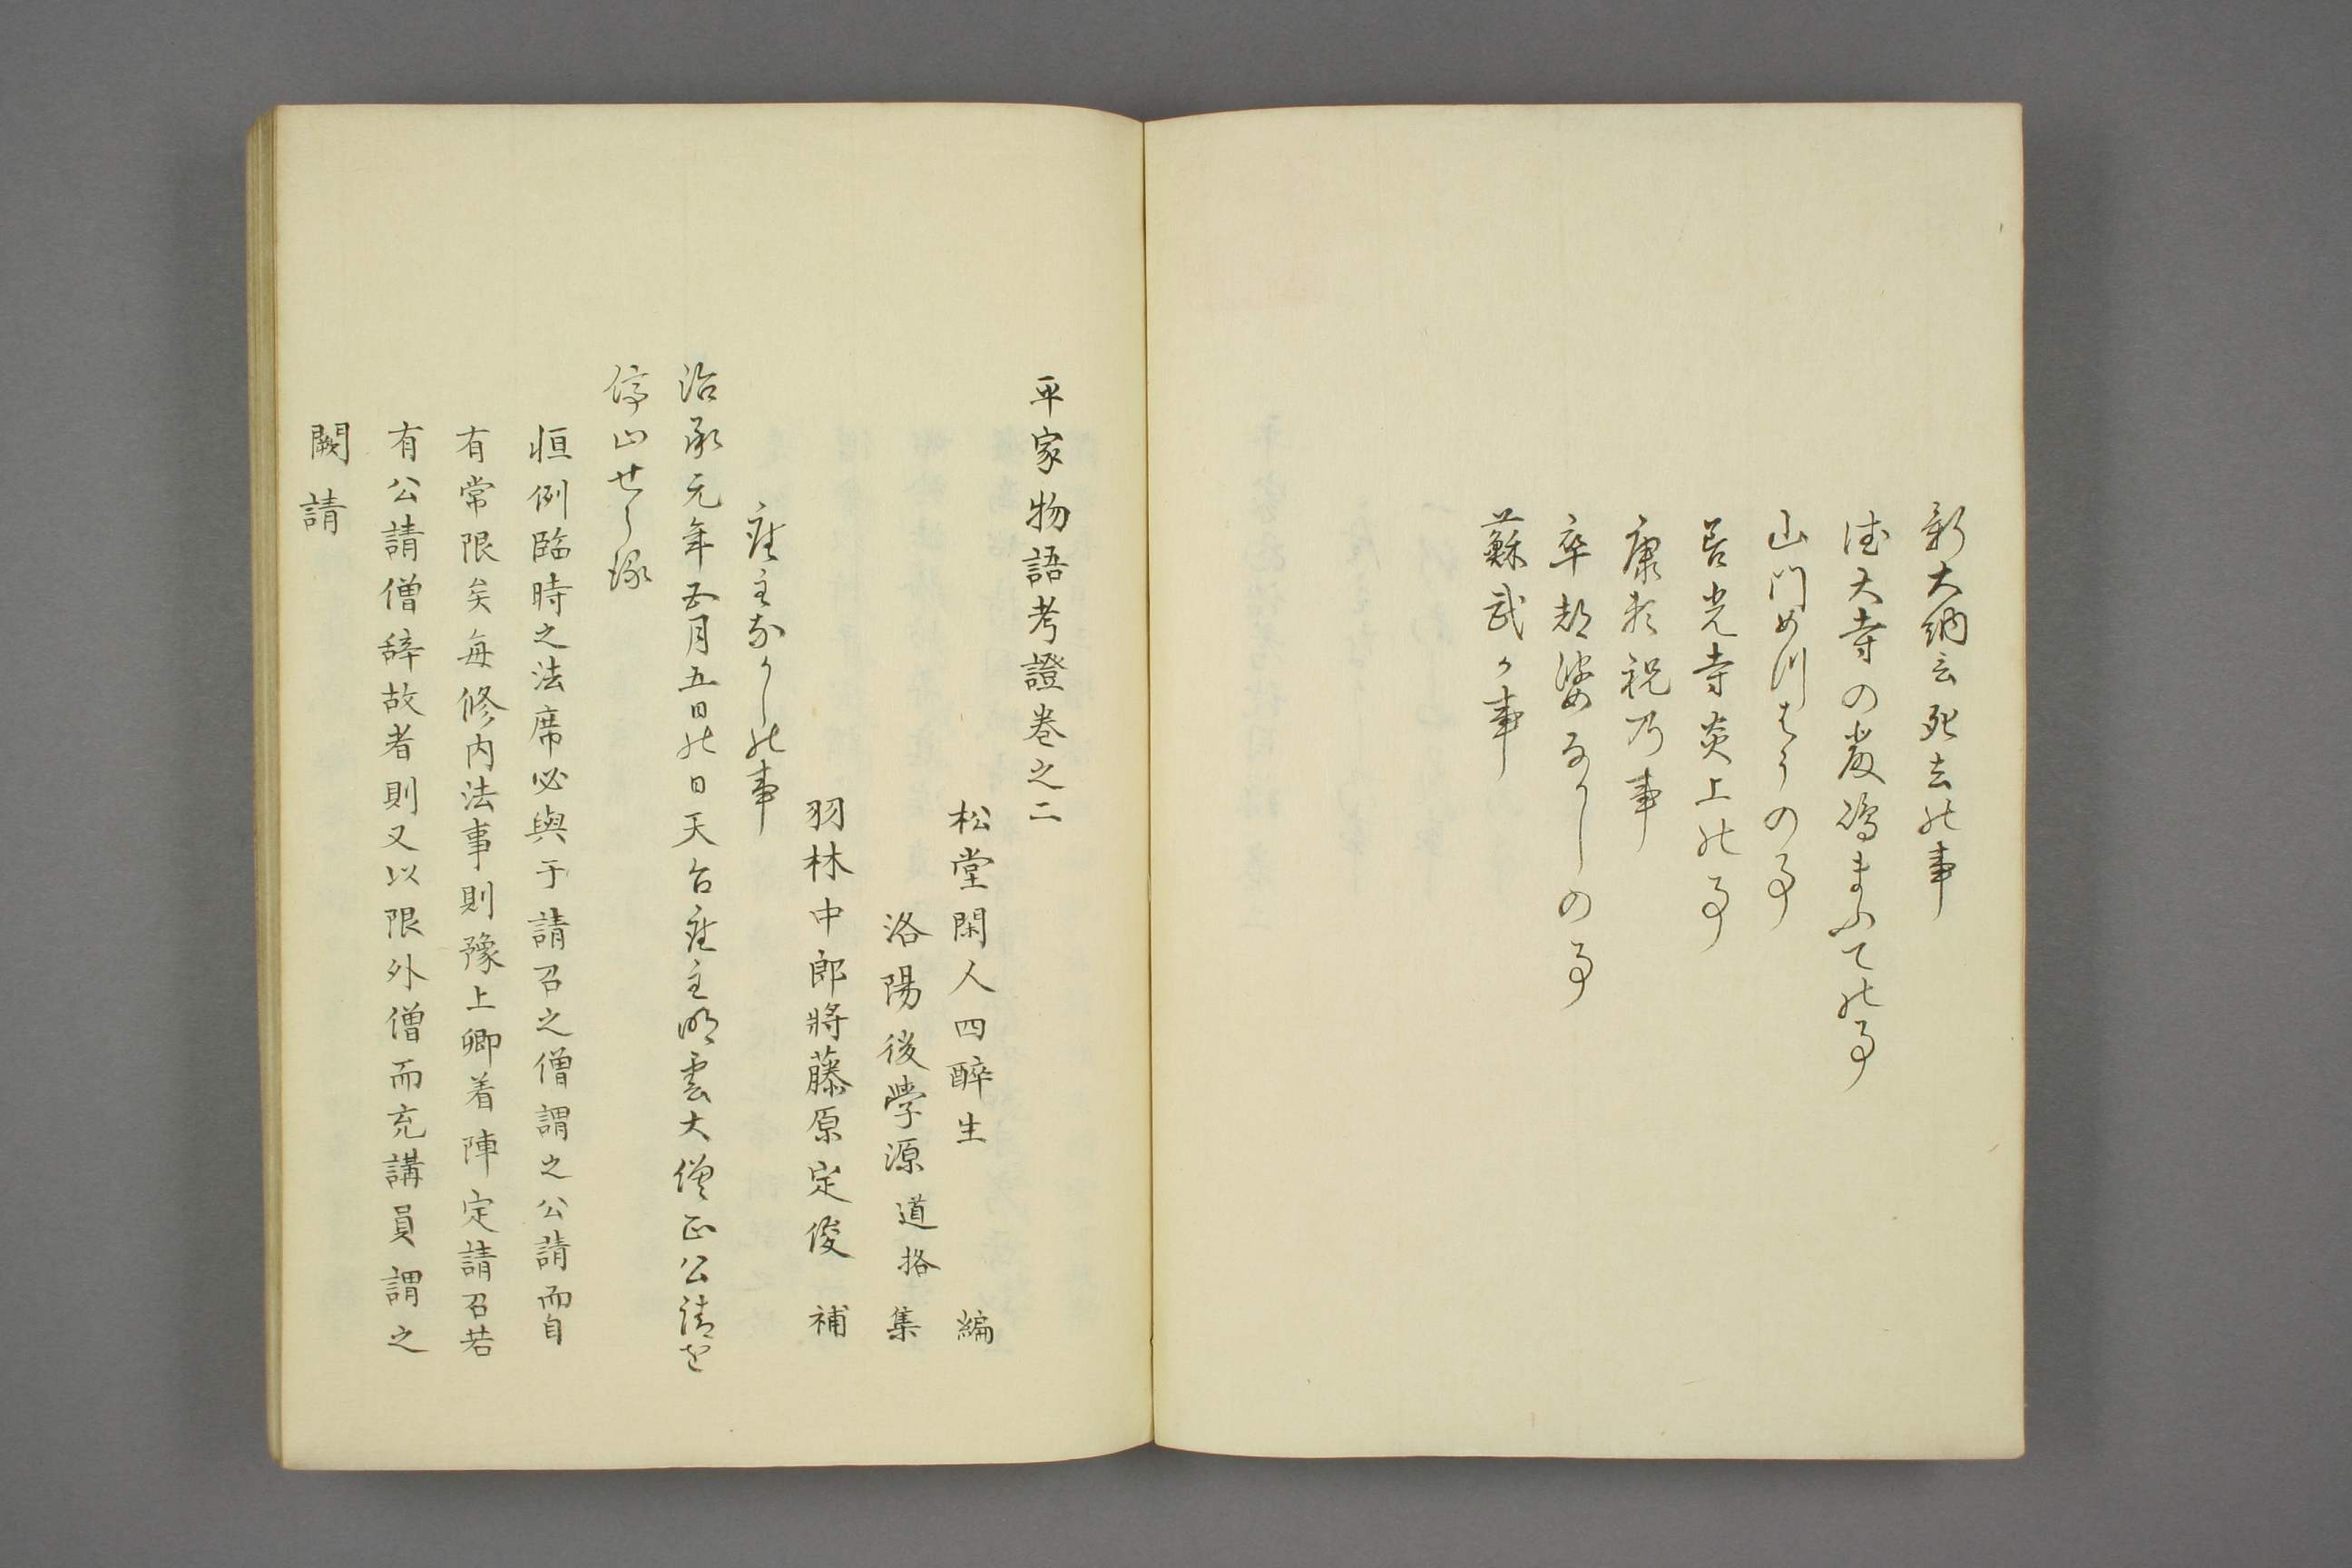 新大納言死去の事
徳大寺の厳嶋まふての事
山門めつはうの事
善光寺炎上の事
康頼祝乃事
卒都婆なかしの事
蘇武か事
平家物語考證巻之二
松堂閑人四醉生　編
洛陽後學源道格　集
羽林中郎將藤原定俊　補
座主なかしの事
治承元年五月五日の日天台座主明雲大僧正公請を
停止せらる
恒例臨時之法席必與于請召之僧謂之公請而自
有常限矣每修内法事則豫上卿着陣定請召若
有公請僧辞故者則又以限外僧而充講員謂之
闕請